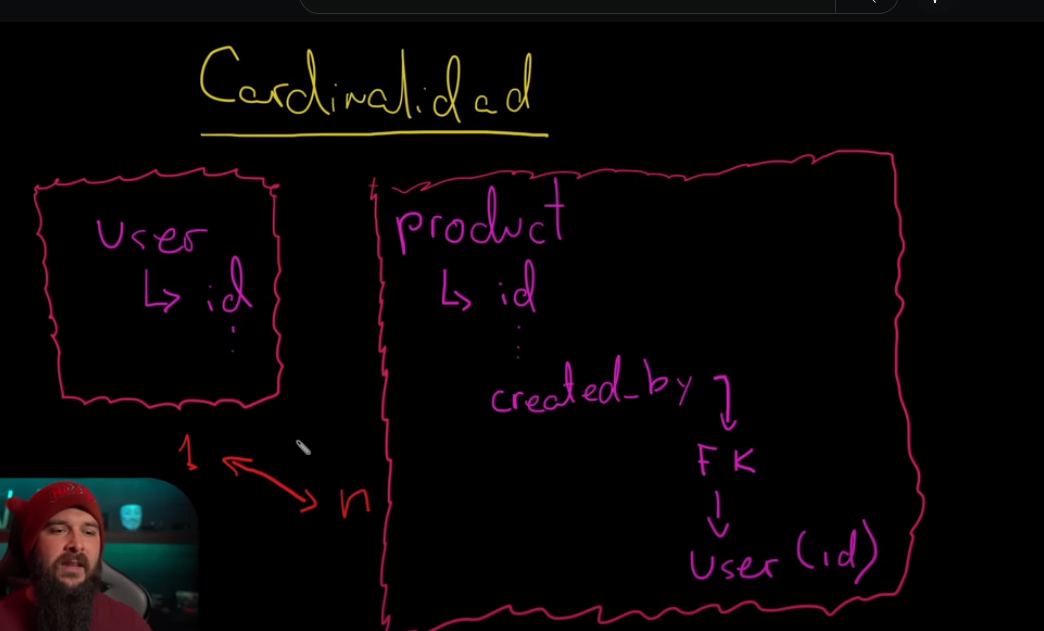 Cardinalidad
user
↳ id
product
↳ id
created_by
FK
User (id)
1
n